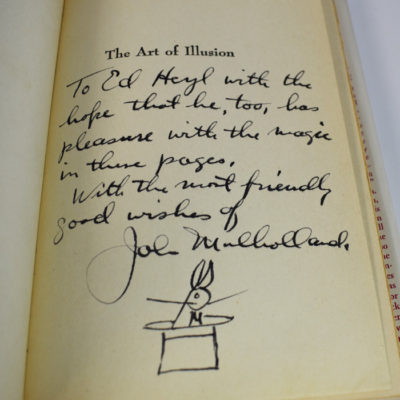 The Art of Illusion
To Ed Heyl with the
hope that he, too, has
pleasure with the magic
in these pages.
With the most friendly
good wishes of
John Mulholland.
M